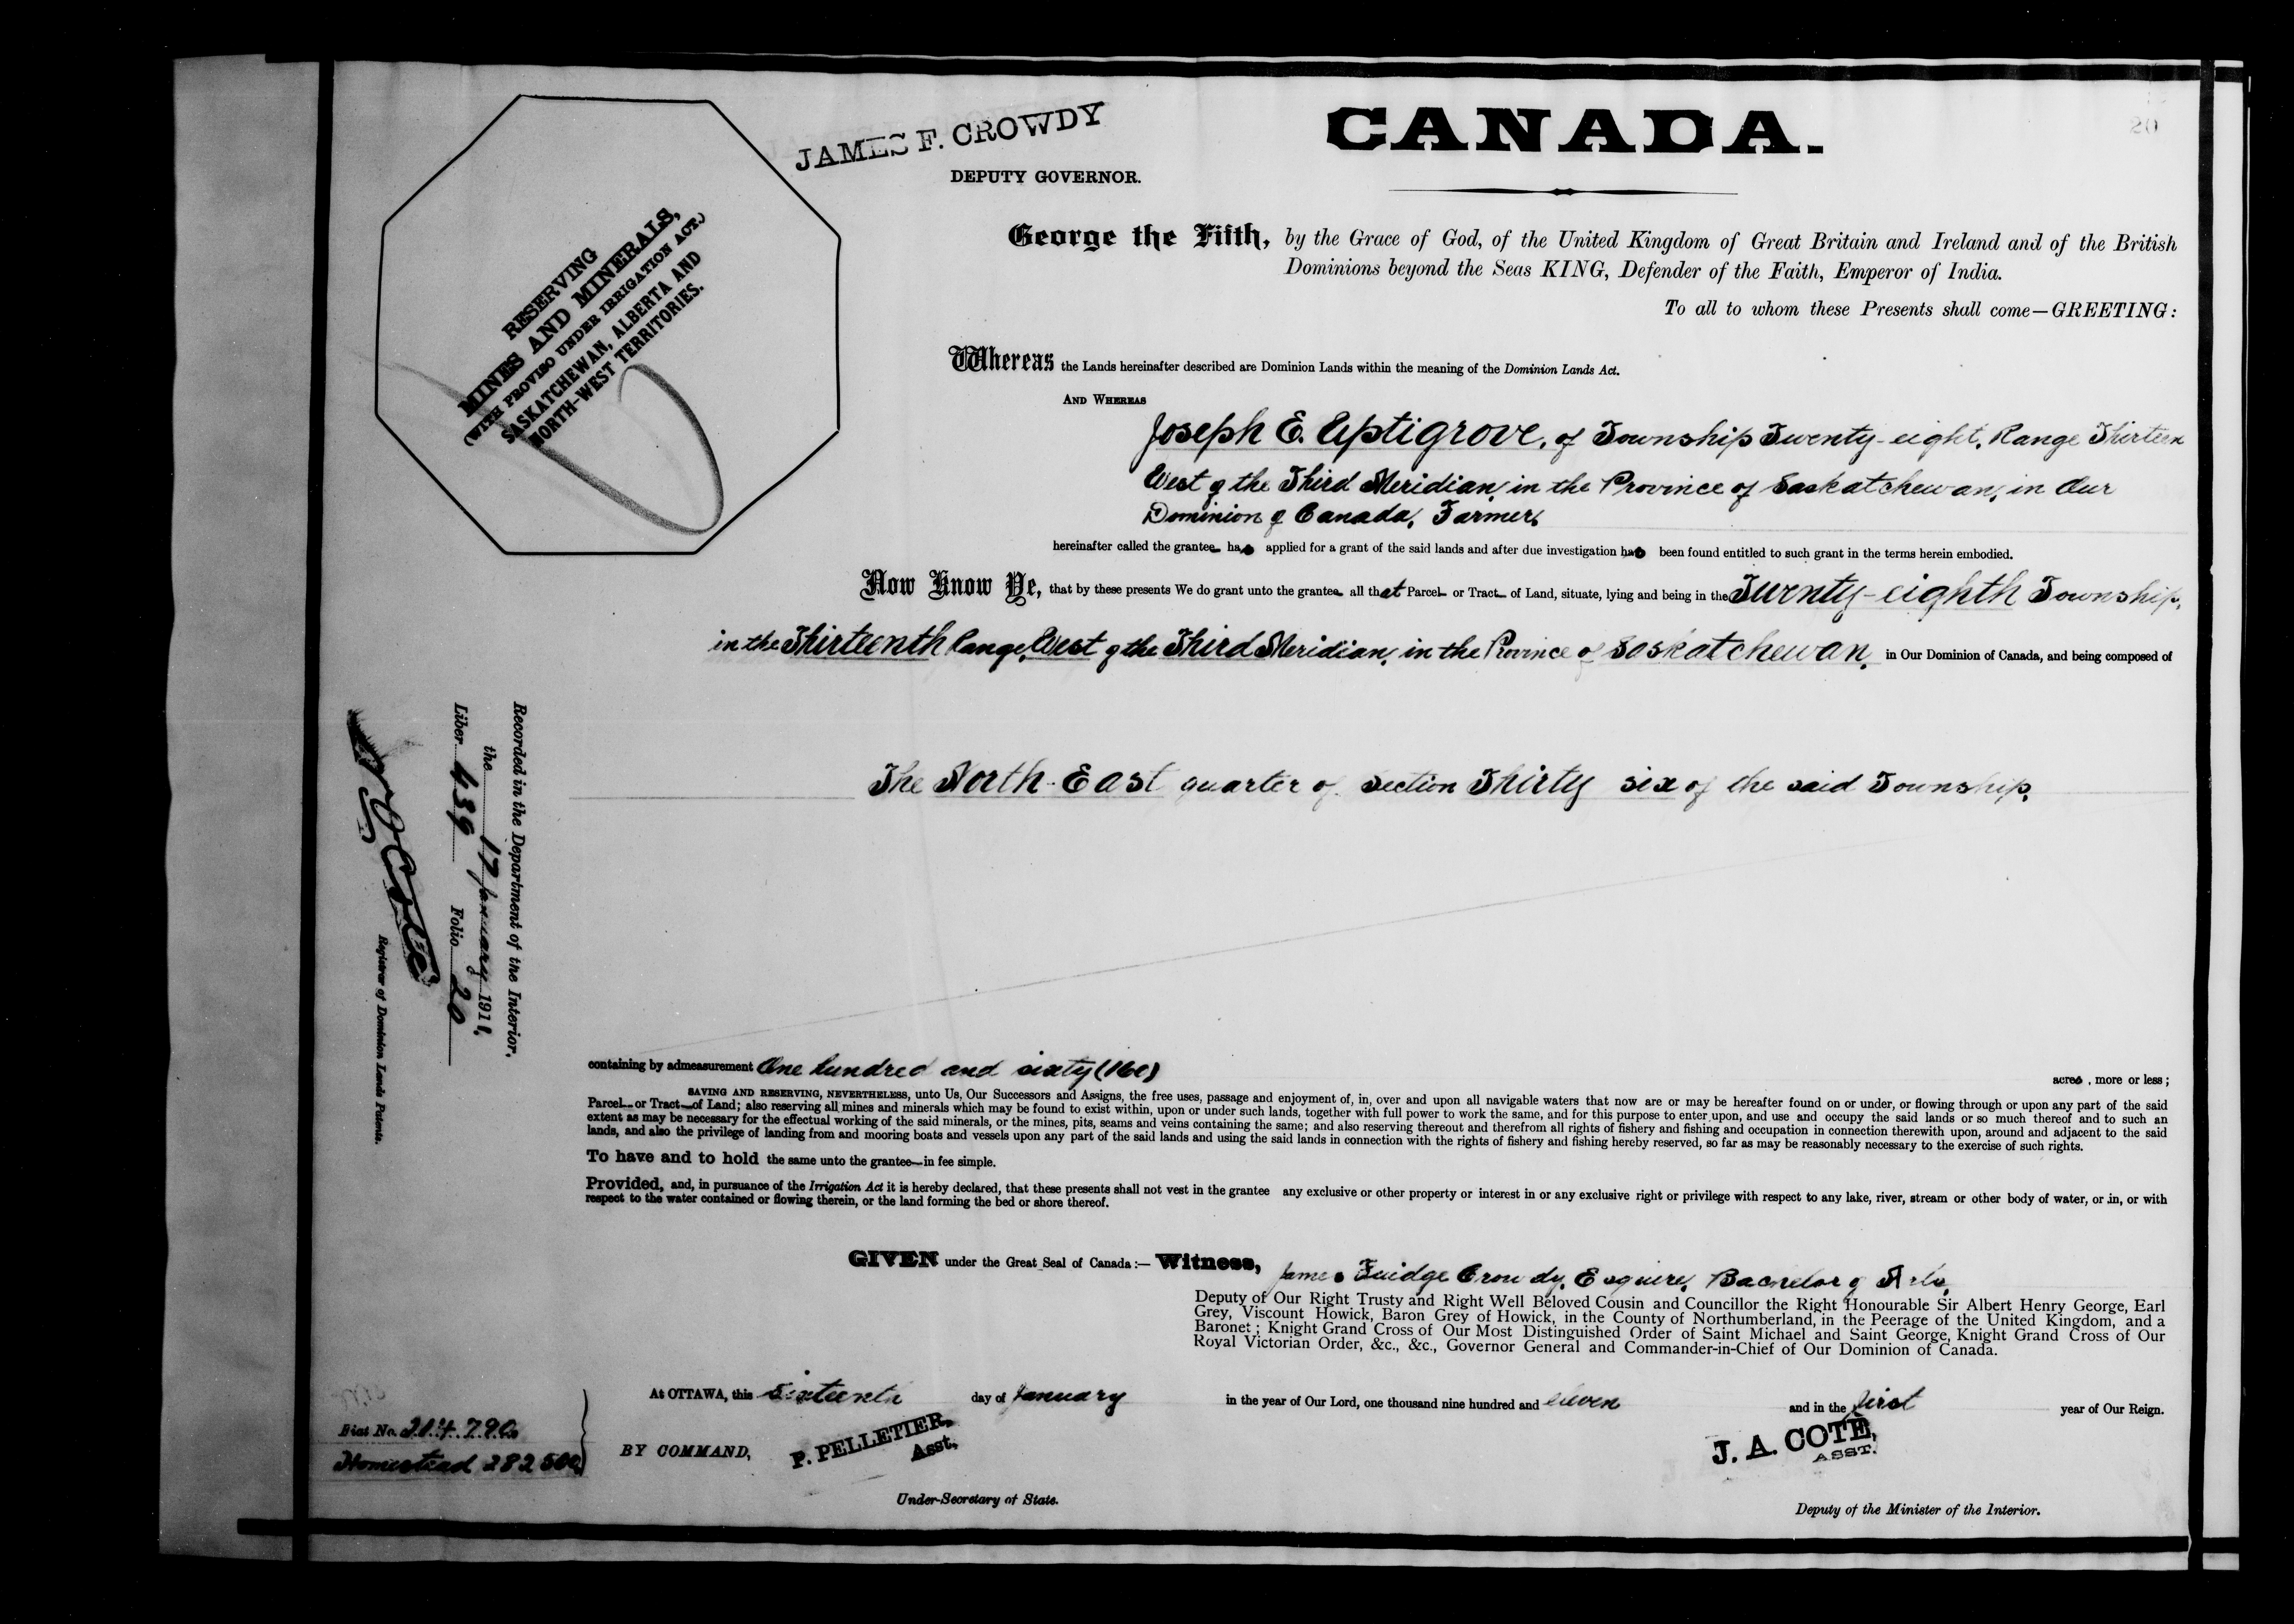 20
JAMES F. CROWDY
DEPUTY GOVERNOR.
CANADA.
RESERVING
MINES AND MINERALS,
(WITH PROVISO UNDER IRRIGATION ACT.)
SASKATCHEWAN, ALBERTA AND
NORTH-WEST TERRITORIES.
George the Fifth, by the Grace of God, of the United Kingdom of Great Britain and Ireland and of the British
Dominions beyond the Seas KING, Defender of the Faith, Emperor of India.
To all to whom these Presents shall come—GREETING:
Whereas the Lands hereinafter described are Dominion Lands within the meaning of the Dominion Lands Act.
AND WHEREAS
Joseph E. Uptigrove, of Township Twenty-eight, Range Thirteen
West of the Third Meridian, in the Province of Saskatchewan, in Our
Dominion of Canada, Farmer,
hereinafter called the grantee has applied for a grant of the said lands and after due investigation has been found entitled to such grant in the terms herein embodied.
Now Know Ye, that by these presents We do grant unto the grantee all that Parcel or Tract of Land, situate, lying and being in the Twenty-eighth Township,
in the Thirteenth Range, West of the Third Meridian, in the Province of Saskatchewan, in Our Dominion of Canada, and being composed of
The North-East quarter of Section Thirty six of the said Township,
Recorded in the Department of the Interior,
the 17 January 1911,
Liber 439 Folio 20
Registrar of Dominion Lands Patents.
containing by admeasurement One hundred and sixty (160) acres, more or less;
SAVING AND RESERVING, NEVERTHELESS, unto Us, Our Successors and Assigns, the free uses, passage and enjoyment of, in, over and upon all navigable waters that now are or may be hereafter found on or under, or flowing through or upon any part of the said
Parcel or Tract of Land; also reserving all mines and minerals which may be found to exist within, upon or under such lands, together with full power to work the same, and for this purpose to enter upon, and use and occupy the said lands or so much thereof and to such an
extent as may be necessary for the effectual working of the said minerals, or the mines, pits, seams and veins containing the same; and also reserving thereout and therefrom all rights of fishery and fishing and occupation in connection therewith upon, around and adjacent to the said
lands, and also the privilege of landing from and mooring boats and vessels upon any part of the said lands and using the said lands in connection with the rights of fishery and fishing hereby reserved, so far as may be reasonably necessary to the exercise of such rights.
To have and to hold the same unto the grantee in fee simple.
Provided, and, in pursuance of the Irrigation Act it is hereby declared, that these presents shall not vest in the grantee any exclusive or other property or interest in or any exclusive right or privilege with respect to any lake, river, stream or other body of water, or in, or with
respect to the water contained or flowing therein, or the land forming the bed or shore thereof.
GIVEN under the Great Seal of Canada:— Witness, James Fuidge Crowdy, Esquire, Bachelor of Arts,
Deputy of Our Right Trusty and Right Well Beloved Cousin and Councillor the Right Honourable Sir Albert Henry George, Earl
Grey, Viscount Howick, Baron Grey of Howick, in the County of Northumberland, in the Peerage of the United Kingdom, and a
Baronet; Knight Grand Cross of Our Most Distinguished Order of Saint Michael and Saint George, Knight Grand Cross of Our
Royal Victorian Order, &c., &c., Governor General and Commander-in-Chief of Our Dominion of Canada.
At OTTAWA, this sixteenth day of January in the year of Our Lord, one thousand nine hundred and eleven and in the first year of Our Reign.
Fiat No.
Homestead 282500
BY COMMAND,
P. PELLETIER,
Asst.
Under-Secretary of State.
J. A. COTE,
ASST.
Deputy of the Minister of the Interior.